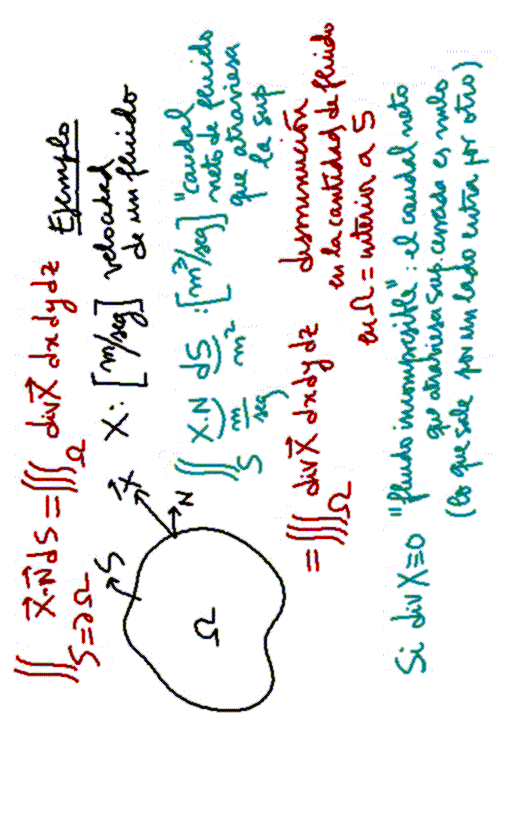 ∬_{S=∂Ω} X⃗·N⃗ dS = ∭_Ω div X⃗ dx dy dz
Ejemplo
X: [m/seg] velocidad
de un fluido
S
X
N
Ω
∬_S X·N dS : [m³/seg] "caudal
m/seg m²
neto de fluido
que atraviesa
la sup
= ∭_Ω div X⃗ dx dy dz
disminución
en la cantidad de fluido
en Ω = interior a S
Si div X≡0 "fluido incompresible": el caudal neto
que atraviesa sup. cerrada es nulo
(lo que sale por un lado entra por otro)